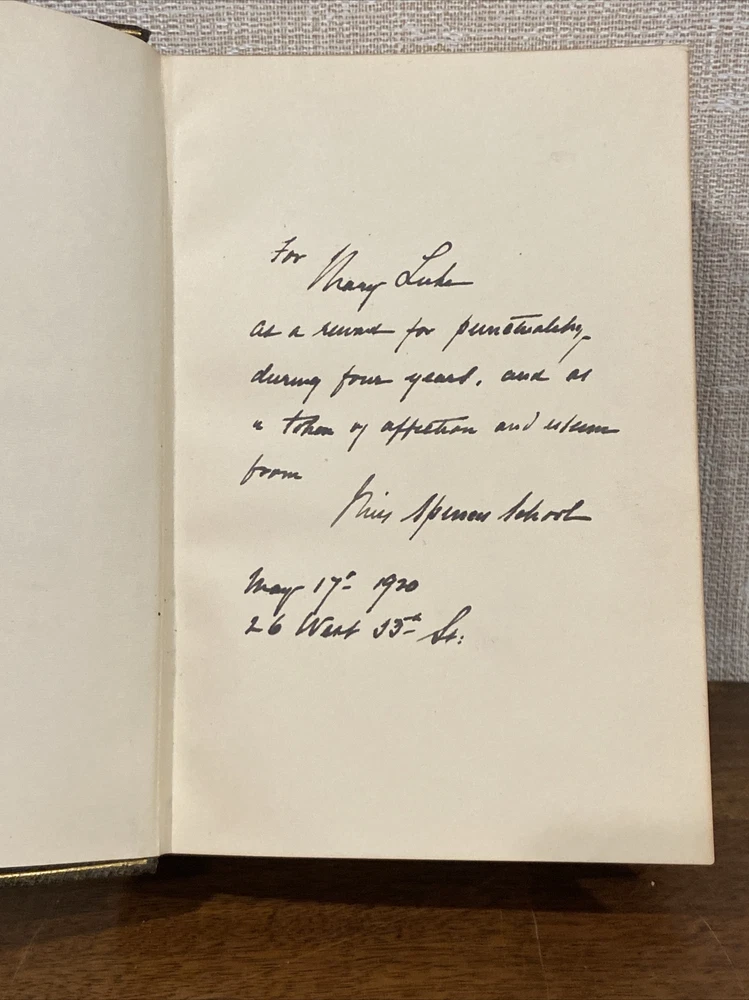 For
Mary Luke
as a reward for punctuality,
during four years, and as
a token of affection and esteem
from
Miss Spence's School
May 17th 1920
26 West 55th St: